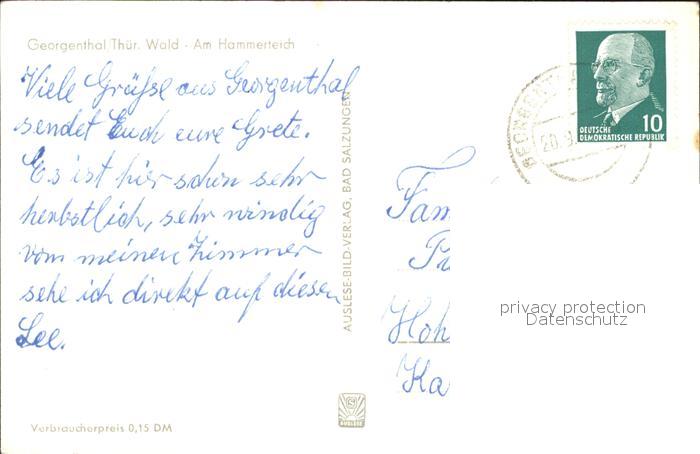 Georgenthal/Thür. Wald - Am Hammerteich
Viele Grüße aus Georgenthal
sendet Euch eure Grete.
Es ist hier schon sehr
herbstlich, sehr windig
vom meinen Zimmer
sehe ich direkt auf diesen
See.
Verbraucherpreis 0,15 DM
AUSLESE-BILD-VERLAG, BAD SALZUNGEN
AUSLESE
DEUTSCHE
DEMOKRATISCHE REPUBLIK
10
20.9.
Fam
Hoh
Ka
privacy protection
Datenschutz